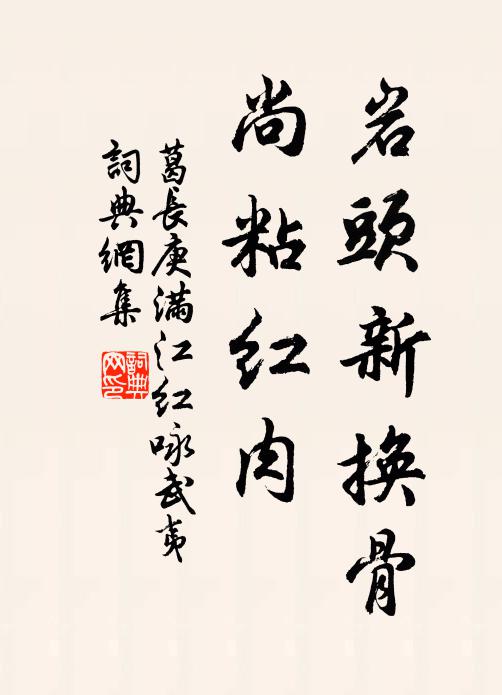 岩頭新換骨
尚粘紅肉
葛長庚滿江紅咏武夷
詞典網集
詞典网印